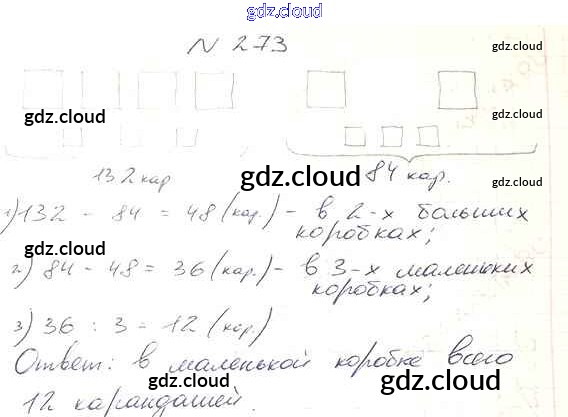 gdz.cloud
N 273
gdz.cloud
gdz.cloud
gdz.cloud
132 кар
84 кар.
gdz.cloud
gdz.cloud
1) 132 - 84 = 48 (кар.) - в 2-х больших
коробках;
gdz.cloud
2) 84 - 48 = 36 (кар.) - в 3-х маленьких
коробках;
3) 36 : 3 = 12 (кар.)
gdz.cloud
Ответ: в маленькой коробке всего
12 карандашей.
gdz.cloud
gdz.cloud